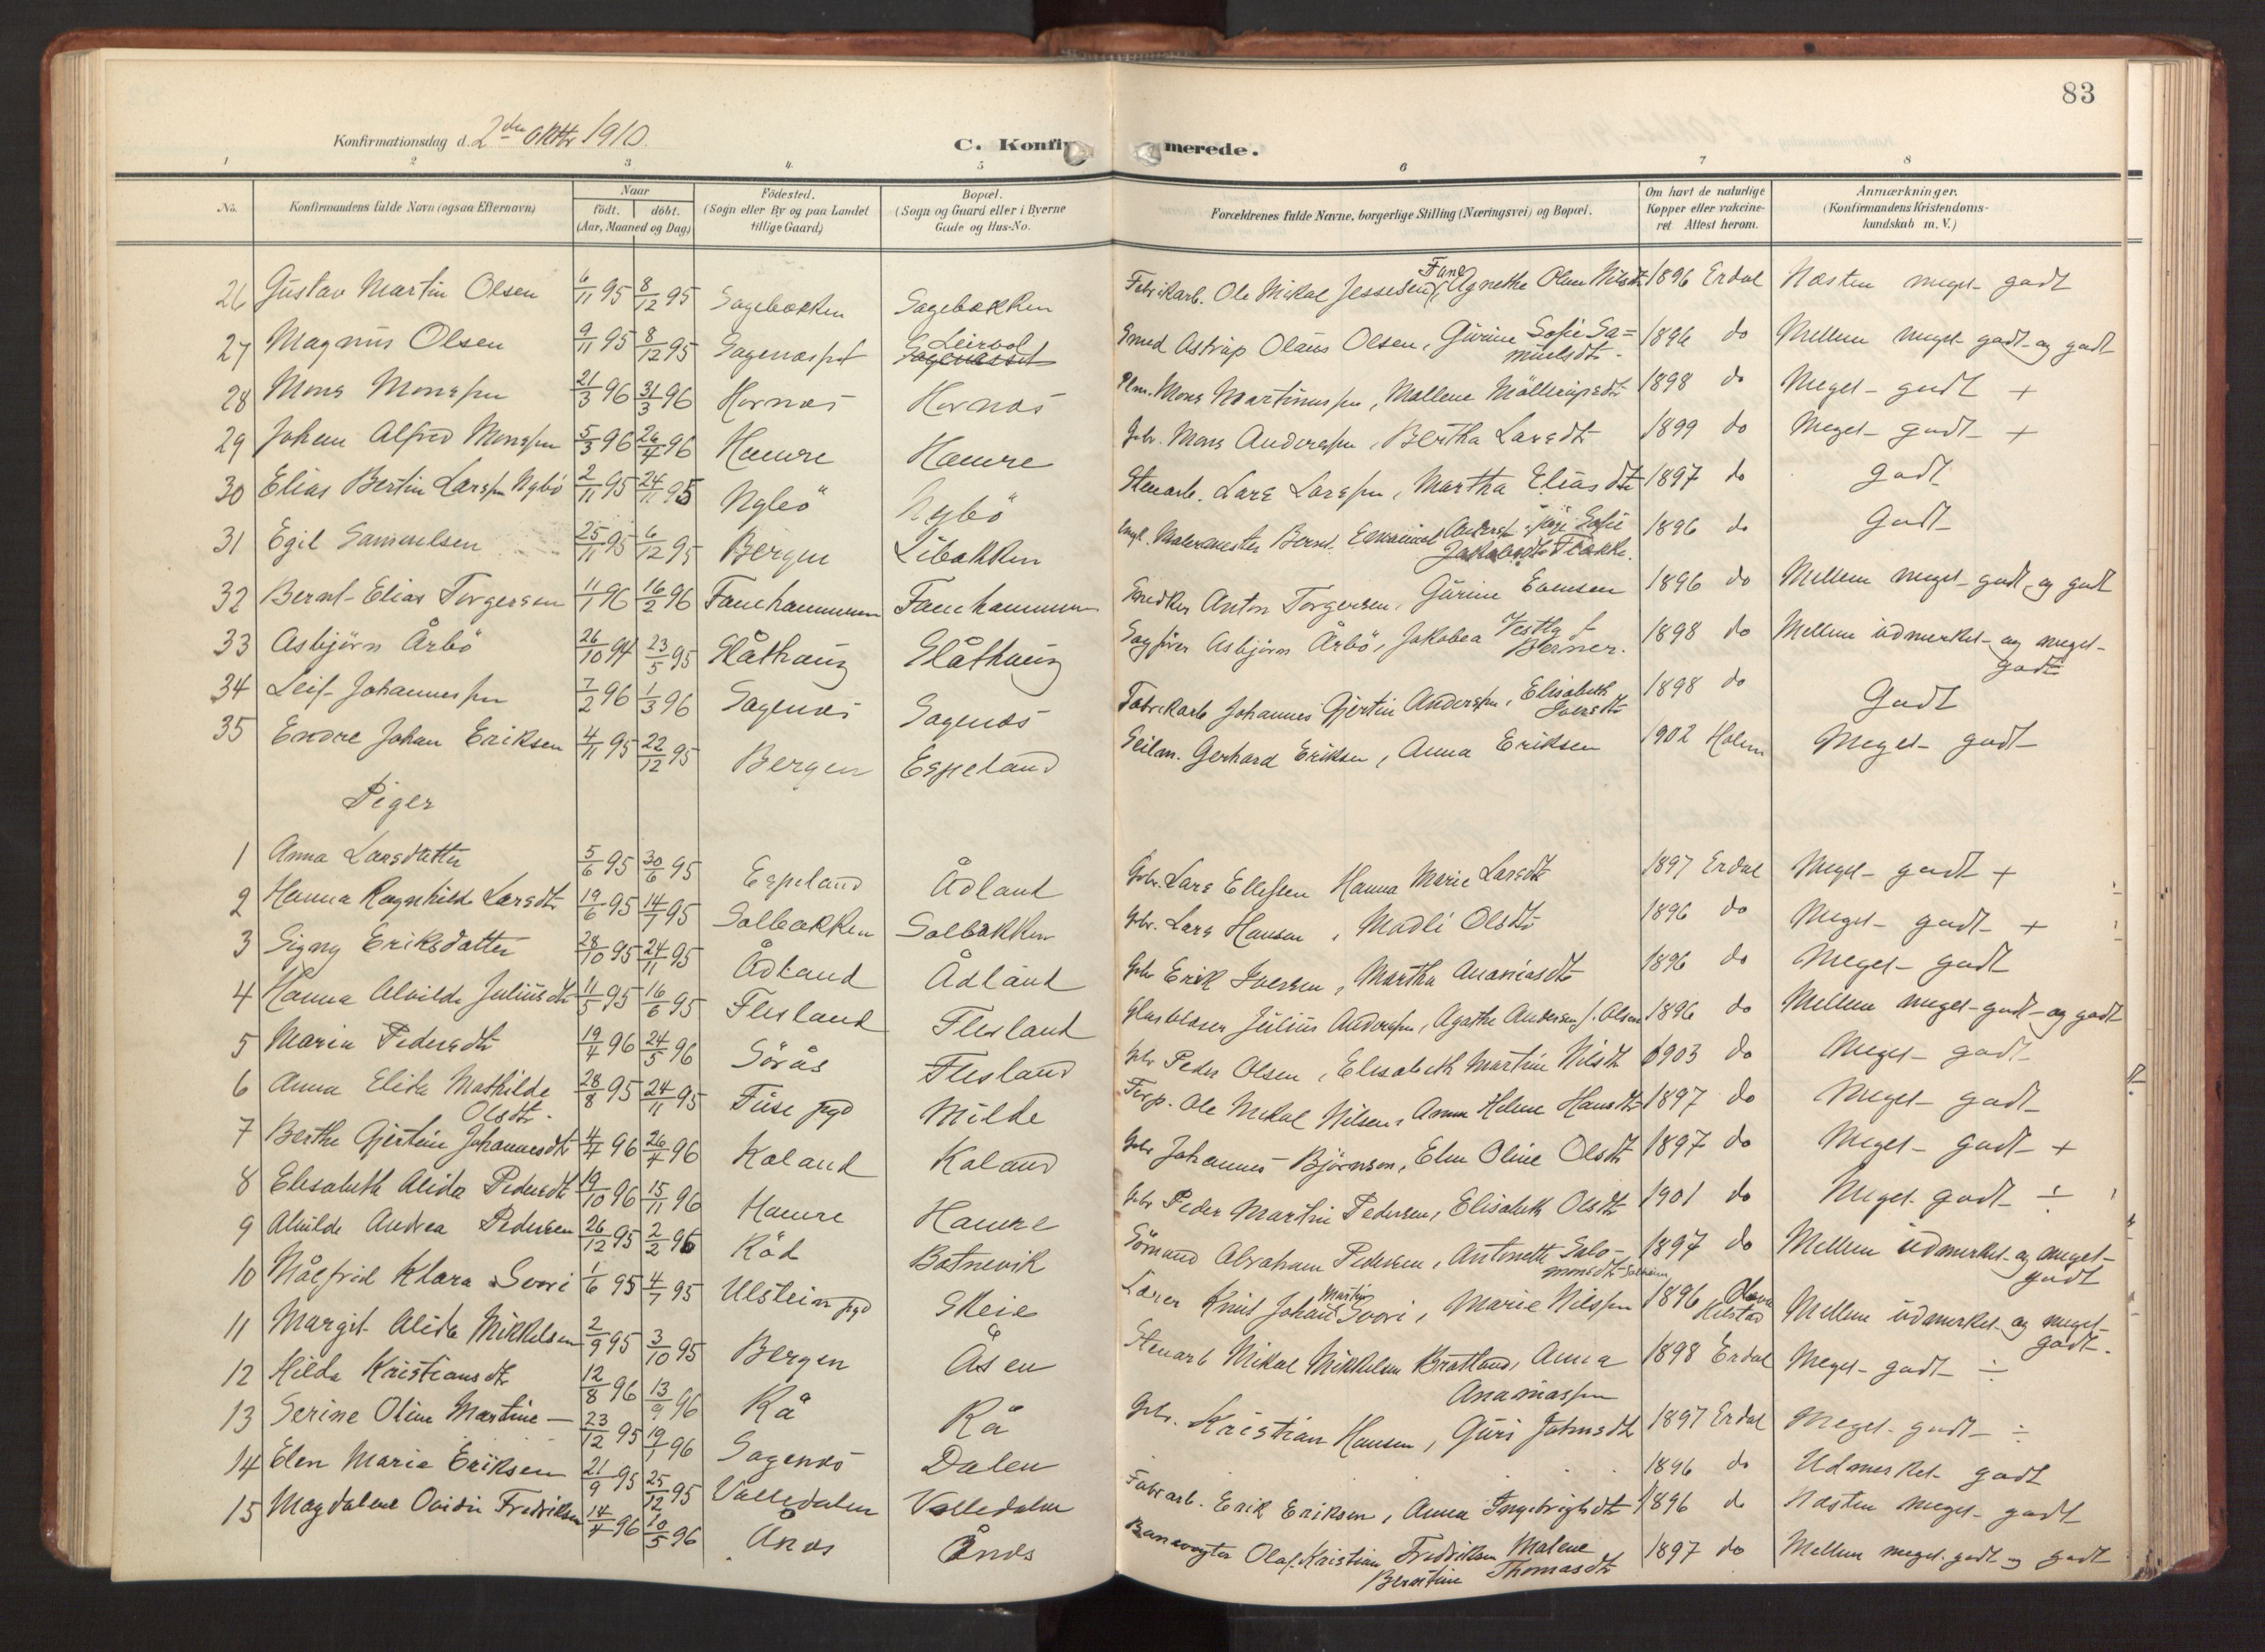 83
Konfirmationsdag d. 2den oktbr 1910.
C. Konfirmerede.
1 2 3 4 5 6 7 8
No.
Konfirmandens fulde Navn (ogsaa Efternavn)
Naar
födt. döbt.
(Aar, Maaned og Dag)
Födested.
(Sogn eller By og paa Landet
tillige Gaard)
Bopæl.
(Sogn og Gaard eller i Byerne
Gade og Hus-No.
Forældrenes fulde Navne, borgerlige Stilling (Næringsvei) og Bopæl.
Om havt de naturlige
Kopper eller vakcine-
ret Attest herom.
Anmærkninger.
(Konfirmandens Kristendoms-
kundskab m. V.)
26 Gustav Martin Olsen 6/11 95 8/12 95 Sagebakken Sagebakken Fabrikarb. Ole Mikal Jessesen Fane, Agnethe Oline Nilsdtr 1896 Erdal Næsten meget godt
27 Magnus Olsen 9/11 95 8/12 95 Sagenæsset Leirvol Smed Astrup Olaus Olsen, Gurine Sofie Sa=
muelsdtr. 1896 do Mellem meget godt og godt
28 Mons Monssen 21/3 96 31/3 96 Hornæs Hornæs Plm. Mons Martinussen, Mallene Möllerupsdtr 1898 do Meget godt +
29 Johan Alfred Monssen 5/3 96 26/4 96 Hamre Hamre Gbr. Mons Anderssen, Bertha Larsdtr 1899 do Meget godt +
30 Elias Bertin Larssen Nybö 2/11 95 24/11 95 Nybö Nybö Stenarb. Lars Larssen, Martha Eliasdtr 1897 do godt
31 Egil Samuelsen 25/11 95 6/12 95 Bergen Libakken Malermester Bernt Sofie
Jakobsdtr Flække. 1896 do Godt
32 Bernt Elias Torgersen 11/1 96 16/2 96 Fanehammeren Fanehammeren Snedker Anton Torgersen, Gurine Evensen 1896 do Mellem meget godt og godt
33 Asbjörn Årbö 26/10 94 23/5 95 Slåthaug Slåthaug Sagförer Asbjörn Årbö, Jakobea Vestby f.
Berner. 1898 do Mellem udmerket og meget
godt
34 Leif Johannessen 7/2 96 1/3 96 Sagenæs Sagenæs Fabrikarb Johannes Gjertin Anderssen, Elisabeth
Iversdtr 1898 do Godt
35 Endre Johan Eriksen 4/11 95 22/12 95 Bergen Espeland Seilm. Gerhard Eriksen, Anna Eriksen 1902 Holm Meget godt
Piger
1 Anna Larsdatter 5/6 95 30/6 95 Espeland Ådland Gbr. Lars Ellefsen Hanna Marie Larsdtr 1897 Erdal Meget godt +
2 Hanna Ragnhilde Larsdtr 19/6 95 14/7 95 Solbakken Solbakken Gbr. Lars Hansen, Madli Olsdtr 1896 do Meget godt +
3 Signy Eriksdatter 28/10 95 24/11 95 Ådland Ådland Gbr Erik Iversen, Martha Ananiasdtr 1896 do Meget godt
4 Hanna Alvilde Juliusdtr 11/5 95 16/6 95 Flesland Flesland Glasblaser Julius Anderssen, Agathe Andersen f. Olsen 1896 do Mellem meget godt og godt
5 Marie Pedersdtr 19/4 96 24/5 96 Sörås Flesland Gbr Peder Olsen, Elisabeth Martine Nilsdtr 1903 do Meget godt
6 Anna Elida Mathilde
Olsdtr. 28/8 95 24/11 95 Fuse pgd Milde Forp. Ole Mikal Nilsen, Anna Helene Hansdtr 1897 do Meget godt
7 Berthe Gjertine Johannesdtr 4/4 96 26/4 96 Kaland Kaland Gbr Johannes Björnsen, Elen Oline Olsdtr 1897 do Meget godt +
8 Elisabeth Alida Pedersdtr 19/10 96 15/11 96 Hamre Hamre Gbr Peder Martin Pedersen, Elisabeth Olsdtr 1901 do Meget godt ÷
9 Alvilde Andrea Pedersen 26/12 95 2/2 96 Råd Botnevik Sömand Abraham Pedersen, Antonette Salo-
monsdtr 1897 do Mellem udmerket og meget
godt
10 Målfrid Klara Svori 1/6 95 4/7 95 Ulstein pgd Skeie Lærer Knut Johan Martin Svori, Marie Nilssen 1896 Mellem udmerket og meget
godt.
11 Margit Alida Mikkelsen 2/9 95 3/10 95 Bergen Åsen Stenarb Mikal Mikkelsen Bratland, Anna
Ananiassen 1898 Erdal Meget godt ÷
12 Hilda Kristiansdtr 12/8 96 13/9 96 Rå Rå Gbr. Kristian Hansen, Guri Johnsdtr 1897 Erdal Meget godt ÷
13 Serine Oline Martine — 23/12 95 19/1 96 Sagenæs Dalen 1896 do Udmerket godt
14 Elen Marie Eriksen 21/9 95 25/12 95 Valledalen Valledalen Fabrarb. Erik Eriksen, Anna Ingebrigtsdtr 1896 do Næsten meget godt
15 Magdalene Ovidie Fredriksen 14/4 96 10/5 96 Ånæs Ånæs Banevogter Olaf Kristian Fredriksen Malene
Berntine Thomasdtr 1897 do Mellem meget godt og godt